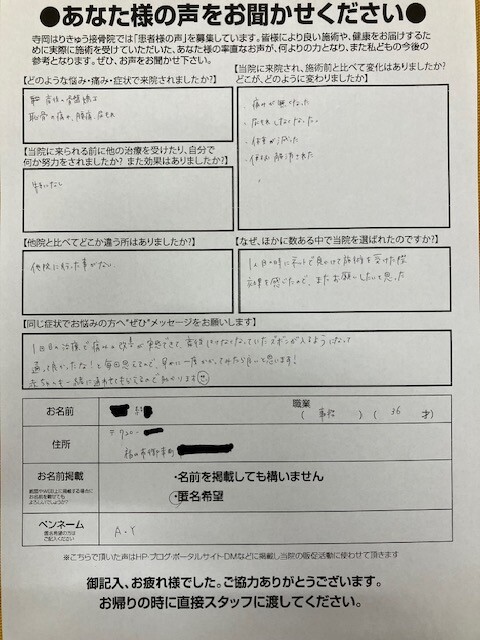 ●あなた様の声をお聞かせください●
寺岡はりきゅう接骨院では「患者様の声」を募集しています。皆様により良い施術や、健康をお届けするた
めに実際に施術を受けていただいた、あなた様の率直なお声が、何よりの力となり、また私どもの今後の
参考となります。ぜひ、お声をお聞かせ下さい。
【どのような悩み・痛み・症状で来院されましたか?】
産後の骨盤矯正
恥骨の痛み、腰痛、尿もれ
【当院に来られる前に他の治療を受けたり、自分で
何か努力をされましたか? また効果はありましたか?】
特になし
【当院に来院され、施術前と比べて変化はありましたか?
どこが、どのように変わりましたか】
・痛みが無くなった
・尿もれしなくなった
・体重が減った
・便秘が解消された
【他院と比べてどこか違う所はありましたか?】
他院に行った事がない
【なぜ、ほかに数ある中で当院を選ばれたのですか?】
1人目の時にネットで見つけて施術を受けた際
効果を感じたので、またお願いしたいと思った
【同じ症状でお悩みの方へ"ぜひ"メッセージをお願いします】
1回目の治療で痛みの改善が実感できて、着れなくなっていたズボンが入るようになって
通って良かったな!と毎回思えるので、早めに一度かかってみたら良いと思います!
赤ちゃんも一緒に通わせてもらえるので助かります
お名前
職業
( 事務 ) ( 36 才)
住所
〒720-
福山市御幸町
お名前掲載
紙面やWEB上に掲載する場合に
お名前を載せても
よろしいでしょうか?
・名前を掲載しても構いません
・匿名希望
ペンネーム
匿名希望の方は
ご記入ください
A・Y
※こちらで頂いた声はHP・ブログ・ポータルサイトDMなどに掲載し当院の販促活動に使わせて頂きます
御記入、お疲れ様でした。ご協力ありがとうございます。
お帰りの時に直接スタッフに渡してください。